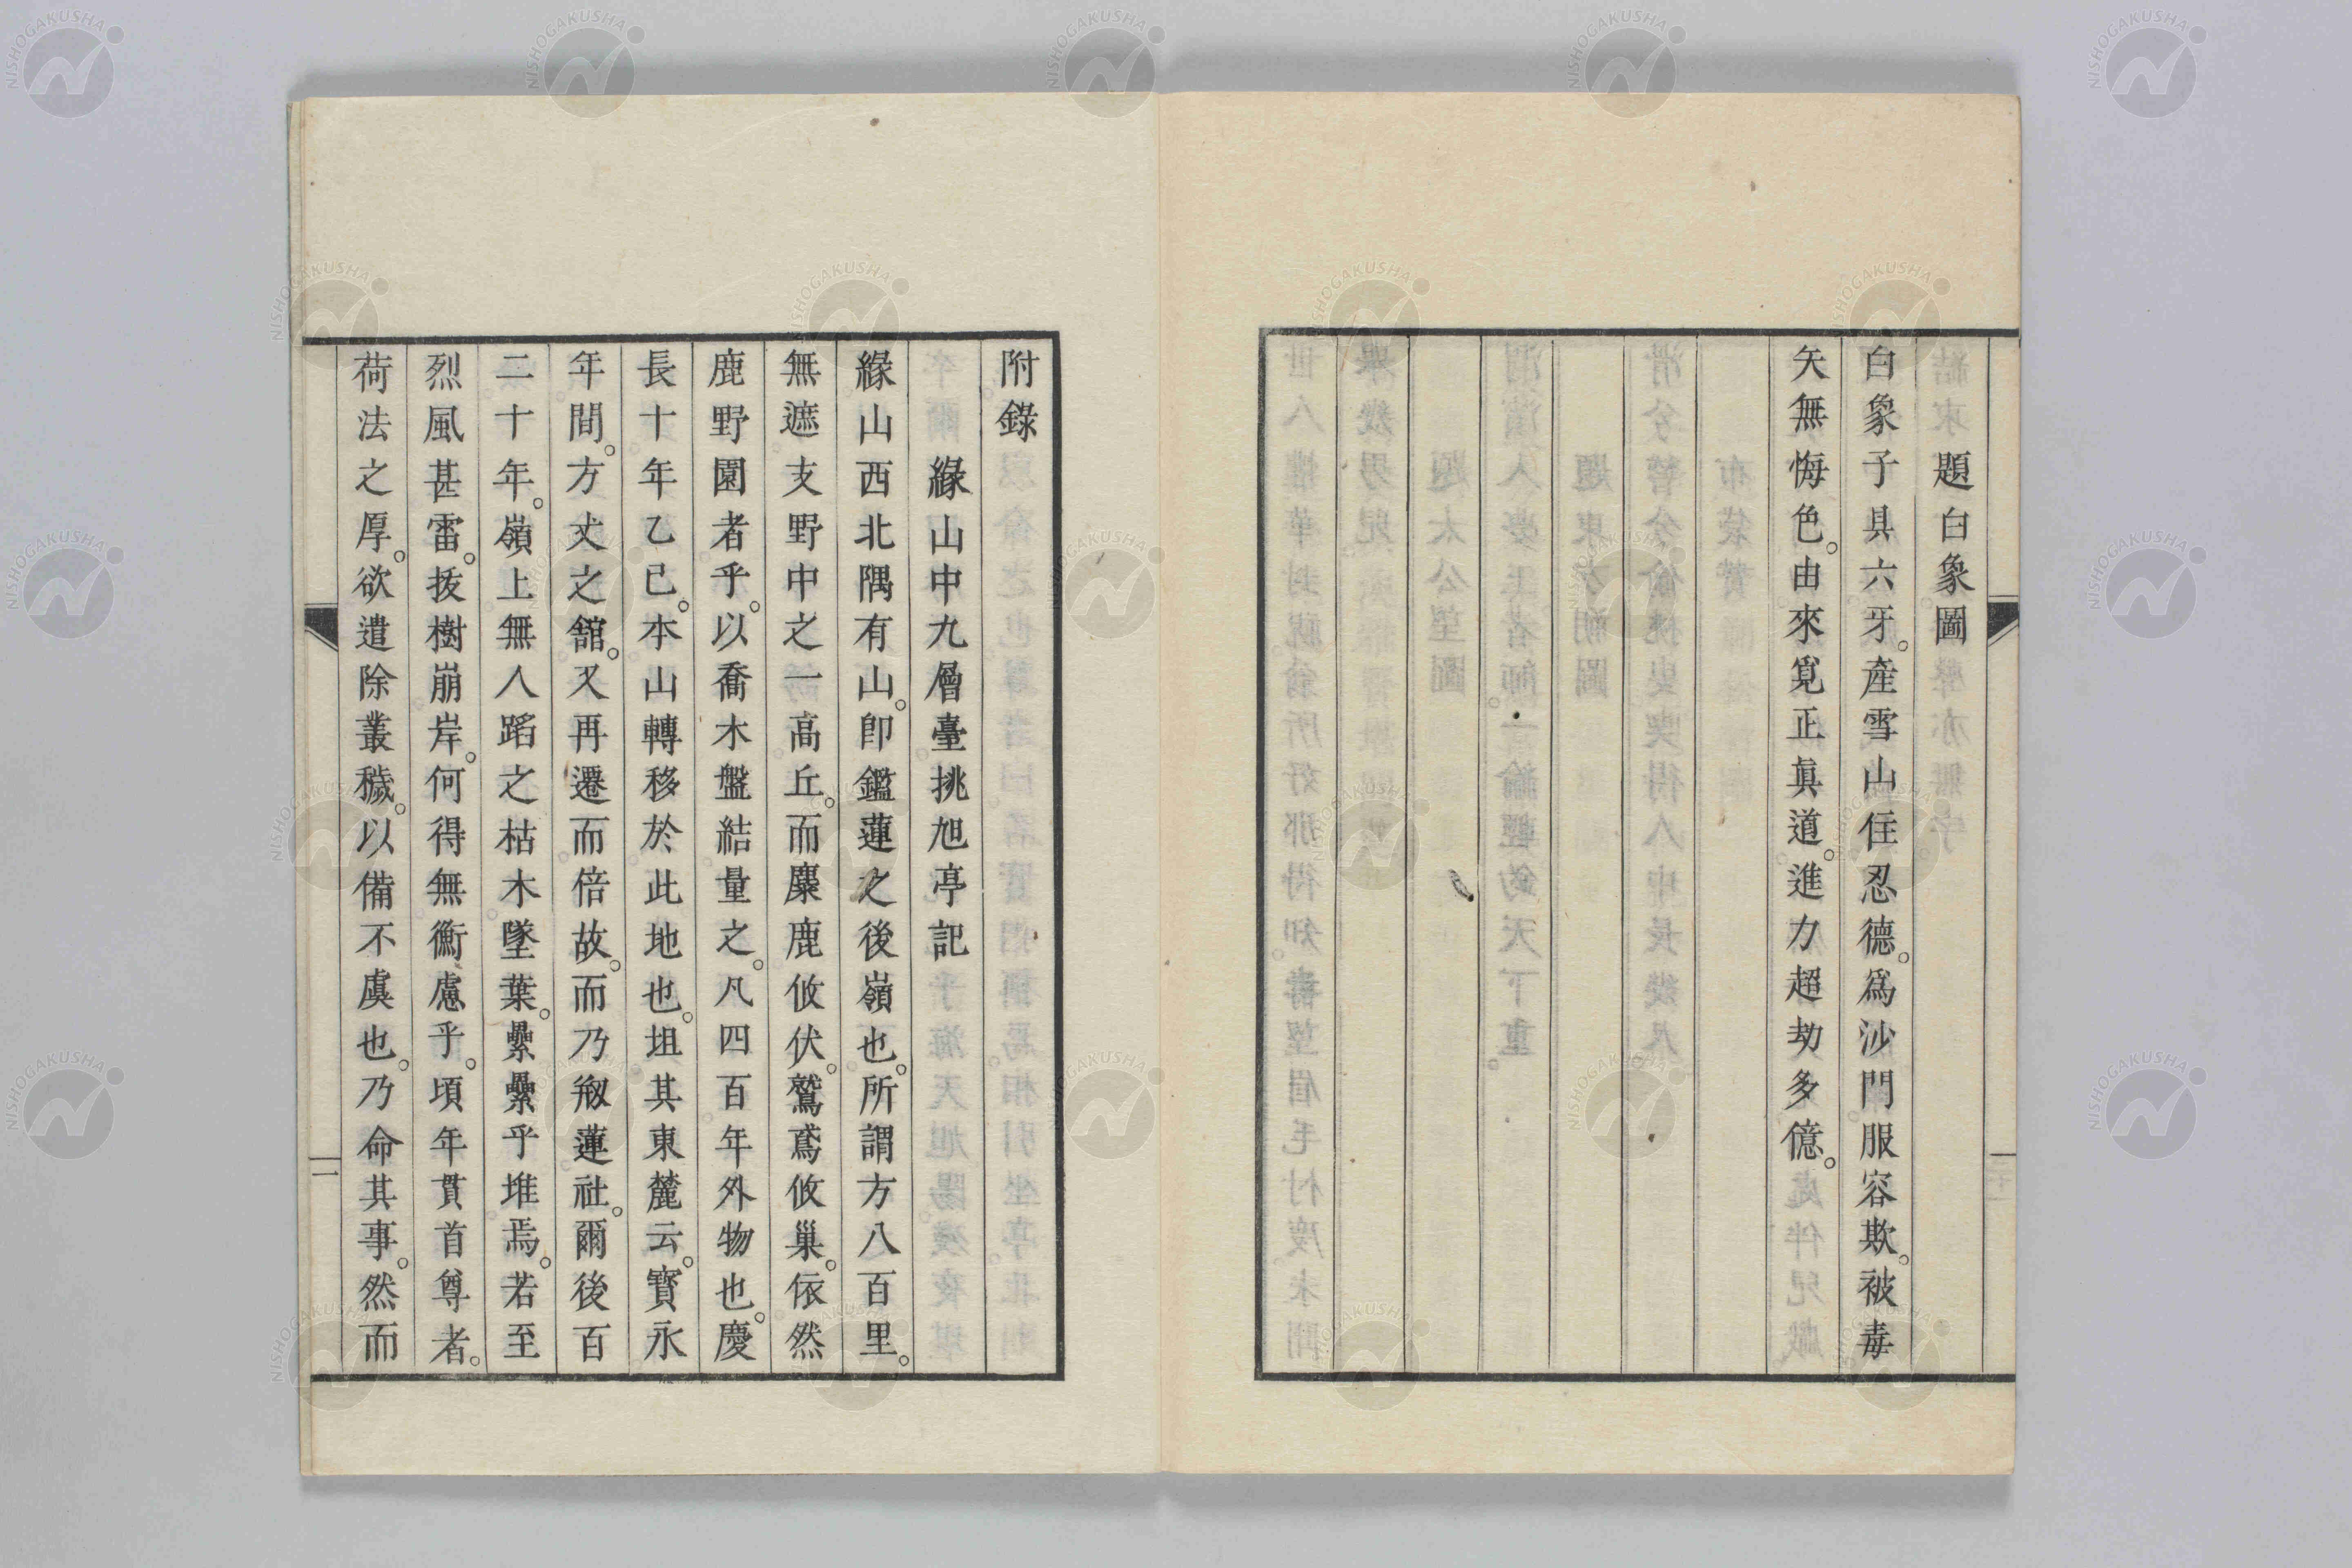 題白象圖
白象子具六牙。產雪山住忍德。爲沙門服容欺。被毒
矢無悔色。由來覓正眞道。進力超劫多億。
附錄
緣山中九層臺挑旭亭記
緣山西北隅有山。卽鑑蓮之後嶺也。所謂方八百里。
無遮支野中之一高丘。而麋鹿攸伏。鷲鳶攸巢。依然
鹿野園者乎。以喬木盤結量之。凡四百年外物也。慶
長十年乙巳。本山轉移於此地也。坥其東麓云。寶永
年間。方丈之舘。又再遷而倍故。而乃剏蓮社。爾後百
二十年。嶺上無人蹈之枯木墜葉。纍纍乎堆焉。若至
烈風甚雷。拔樹崩岸。何得無衡慮乎。頃年貫首尊者。
荷法之厚。欲遣除叢穢。以備不虞也。乃命其事。然而
一
NISHOGAKUSHA